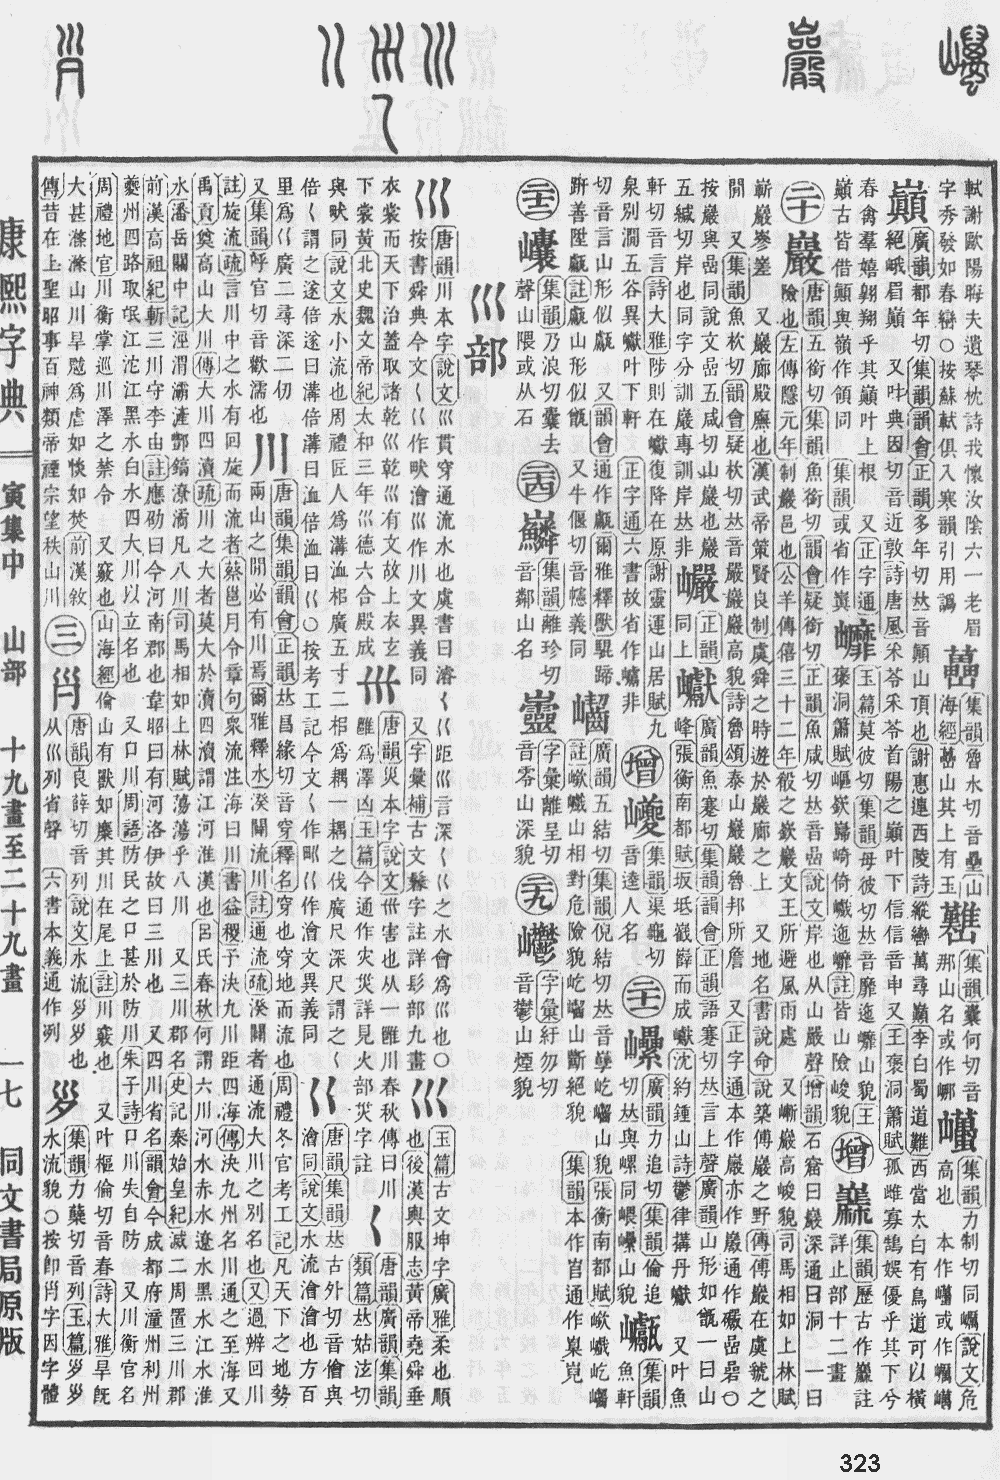 軾謝歐陽晦夫遺琴枕詩我懷汝陰六一老眉
字秀發如春巒○按蘇軾俱入寒韻引用譌
集韻魯水切音壘山
集韻囊何切音
那山名或作㟧
集韻力制切同巁說文危
高也
巔
廣韻都年切集韻韻會正韻多年切𠀤音顚山頂也謝惠連西陵詩縱轡萬尋巔李白蜀道難西當太白有鳥道可以橫
絕峨眉巔 又叶典因切音近敦詩唐風采苓采苓首陽之巔叶下信信音申又王褒洞簫賦孤雌寡鶴娛優乎其下兮
春禽羣嬉翱翔乎其巔叶上根 又正字通
巔古皆借顚與嶺作領同
集韻或省作㠧
玉篇莫彼切集韻母彼切𠀤音靡迤㠧山貌王
褒洞簫賦嶇嶔巋崎倚巇迤㠧註皆山險峻貌
增
集韻歷古作㠣註
詳止部十二畫
二十
巖
唐韻五銜切集韻魚銜切韻會疑銜切正韻魚咸切𠀤音嵒說文岸也从山嚴聲增韻石窟曰巖深通曰洞一曰
險也左傳隱元年制巖邑也公羊傳僖三十二年殽之嶔巖文王所避風雨處 又嶃巖高峻貌司馬相如上林賦
嶄巖嵾嵳 又巖廊殿廡也漢武帝策賢良制虞舜之時遊於巖廊之上 又地名書說命說築傅巖之野傳傅巖在虞虢之
閒 又集韻魚杴切韻會疑杴切𠀤音嚴巖巖高貌詩魯頌泰山巖巖魯邦所詹 又正字通本作巖亦作礹通作礹嵒碞○
按巖與嵒同說文嵒五咸切山巖也巖
五緘切岸也同字分訓巖專訓岸𠀤非
巘
正韻
同上
廣韻魚蹇切集韻韻會正韻語蹇切𠀤言上聲廣韻山形如甑一曰山
峰張衡南都賦坂坻嶻嶭而成巘沈約鍾山詩鬱律搆丹巘 又叶魚
軒切音言詩大雅陟則在巘復降在原謝靈運山居賦九
泉別澗五谷異巘叶下軒 正字通六書故省作㠖非
增
巙
集韻渠龜切
音逵人名
二十一
廣韻力追切集韻倫追
切𠀤與㠥同㟪㠥山貌
甗
集韻
魚軒
切音言山形似甗 又韻會通作甗爾雅釋獸騉蹄
趼善陞甗註甗山形似甑 又牛偃切音巘義同
廣韻五結切集韻倪結切𠀤音孽屹㠨山貌張衡南都賦㟞巇屹㠨
註㟞巇山相對危險貌屹㠨山斷絕貌 集韻本作𡴎通作臬嵲
二十二
集韻乃浪切囊去
聲山隈或从石
二十四
集韻離珍切
音鄰山名
字彙離呈切
音零山深貌
二十九
字彙紆勿切
音鬱山煙貌
巛部
巛
唐韻川本字說文巛貫穿通流水也虞書曰濬𡿨巜距巛言深𡿨巜之水會爲巛也○
按書舜典今文𡿨巜作畎澮巛作川文異義同 又字彙補古文鬊字註詳髟部九畫
巛
玉篇古文坤字廣雅柔也順
也後漢輿服志黃帝堯舜垂
衣裳而天下治蓋取諸乾巛乾巛有文故上衣玄
下裳黃北史魏文帝紀太和三年巛德六合殿成
唐韻烖本字說文巛害也从一雝川春秋傳曰川
雝爲澤凶玉篇今通作灾災詳見火部災字註
𡿨
唐韻廣韻集韻
類篇𠀤姑泫切
與畎同說文水小流也周禮匠人爲溝洫耜廣五寸二耜爲耦一耦之伐廣尺深尺謂之𡿨
倍𡿨謂之遂倍遂曰溝倍溝曰洫倍洫曰巜○按考工記今文𡿨作㽗巜作澮文異義同
巜
唐韻集韻𠀤古外切音儈與
澮同說文水流澮澮也方百
里爲巜廣二尋深二仞
又集韻呼官切音歡濡也
川
唐韻集韻韻會正韻𠀤昌緣切音穿釋名穿也穿地而流也周禮冬官考工記凡天下之地勢
兩山之閒必有川焉爾雅釋水湀闢流川註通流疏湀闢者通流大川之別名也又過辨回川
註旋流疏言川中之水有回旋而流者蔡邕月令章句衆流注海曰川書益稷予決九川距四海傳決九州名川通之至海又
禹貢奠高山大川傳大川四瀆疏川之大者莫大於瀆四瀆謂江河淮漢也呂氏春秋何謂六川河水赤水遼水黑水江水淮
水潘岳關中記涇渭灞滻酆鎬潦潏凡八川司馬相如上林賦蕩蕩乎八川 又三川郡名史記秦始皇紀滅二周置三川郡
前漢高祖紀斬三川守李由註應劭曰今河南郡也韋昭曰有河洛伊故曰三川也 又四川省名韻會今成都府潼州利州
夔州四路取岷江沱江黑水白水四大川以立名也 又口川周語防民之口甚於防川朱子詩口川失自防 又川衡官名
周禮地官川衡掌巡川澤之禁令 又竅也山海經倫山有獸如麋其川在尾上註川竅也 又叶樞倫切音春詩大雅旱旣
大甚滌滌山川旱魃爲虐如惔如焚前漢敘
傳昔在上聖昭事百神類帝禋宗望秩山川
三
唐韻良薛切音列說文水流𡿪𡿪也
从巛列省聲 六書本義通作列
集韻力蘖切音列玉篇𡿪𡿪
水流貌○按卽𡿪字因字體
康熙字典
寅集中 山部 十九畫至二十九畫
一七
同文書局原版
323